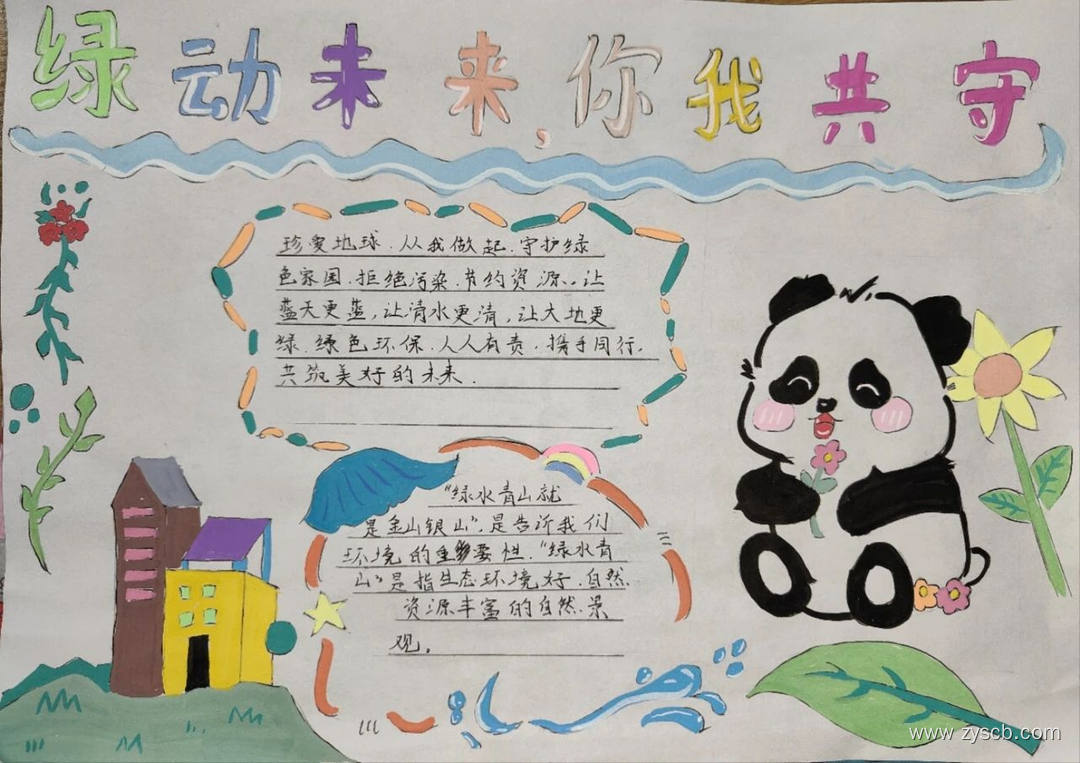 绿动未来,你我共守
珍爱地球.从我做起.守护绿
色家园.拒绝污染.节约资源..让
蓝天更蓝,让清水更清,让大地更
绿.绿色环保.人人有责.携手同行.
共筑美好的未来.
"绿水青山就
是金山银山".是告诉我们
环境的重要性."绿水青
山"是指生态环境好.自然
资源丰富的自然.景
观。
www.zyscb.com